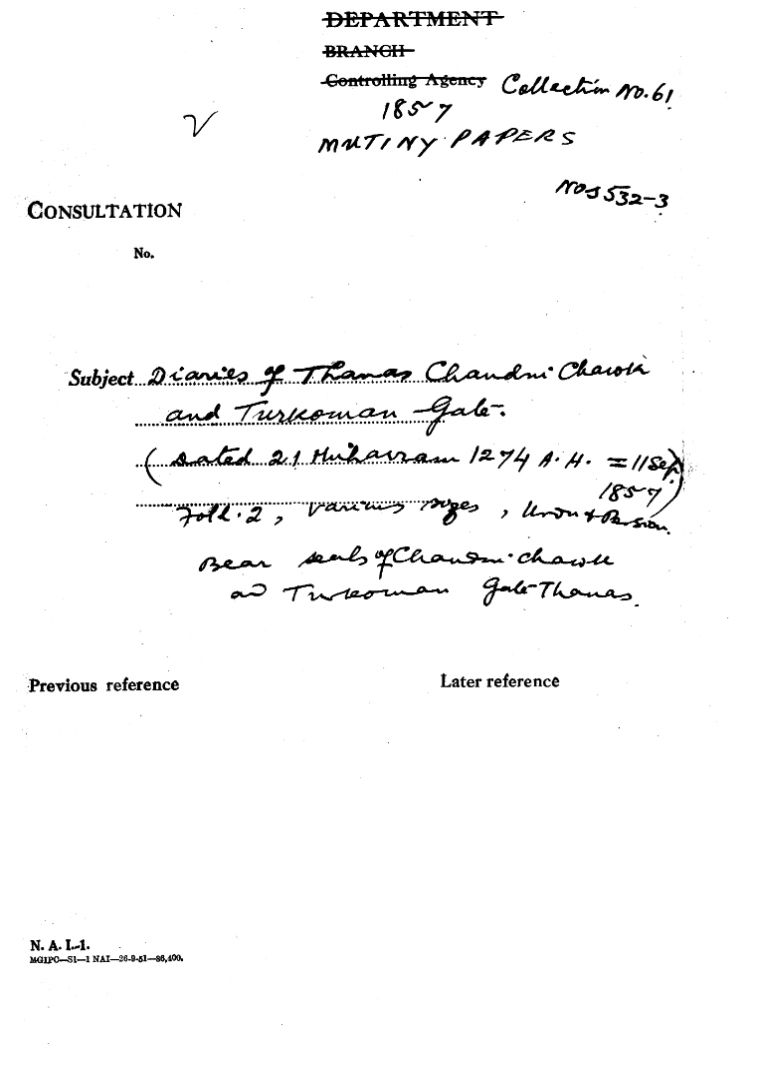 DEPARTMENT
BRANCH
Controlling Agency Collection No. 61
1857
MUTINY PAPERS
Nos 532-3
CONSULTATION
No.
Subject Diaries of Thanas Chandni Chawk
and Turkoman Gate.
(Dated 21 Muharram 1274 A.H. = 11 Sep.
1857)
Foll. 2, various sizes, Urdu & Persian.
Bear seals of Chandni Chawk
and Turkoman Gate Thanas.
Previous reference Later reference
N. A. I.-1.
MGIPC—S1—1 NAI—26-9-51—86,400.